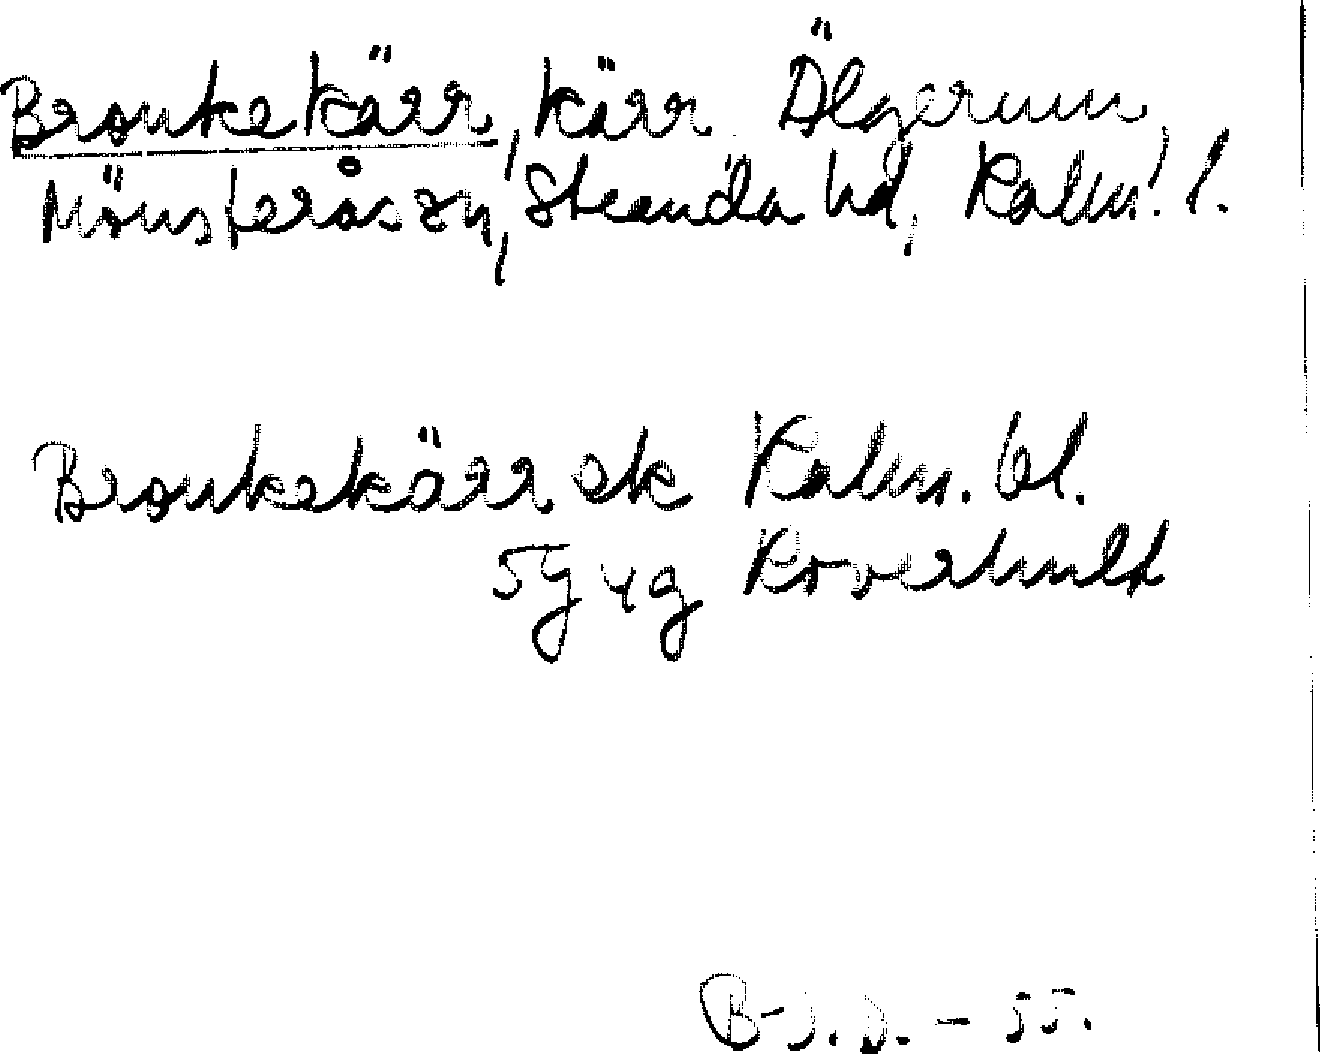 Bronkekärr, kärr Älgerum,
Mönsterås sn, Stranda hd, Kalm. l.
Bronkekärr ek Kalm. bl.
5g 4g Roverhult
B-J.D. - 55.